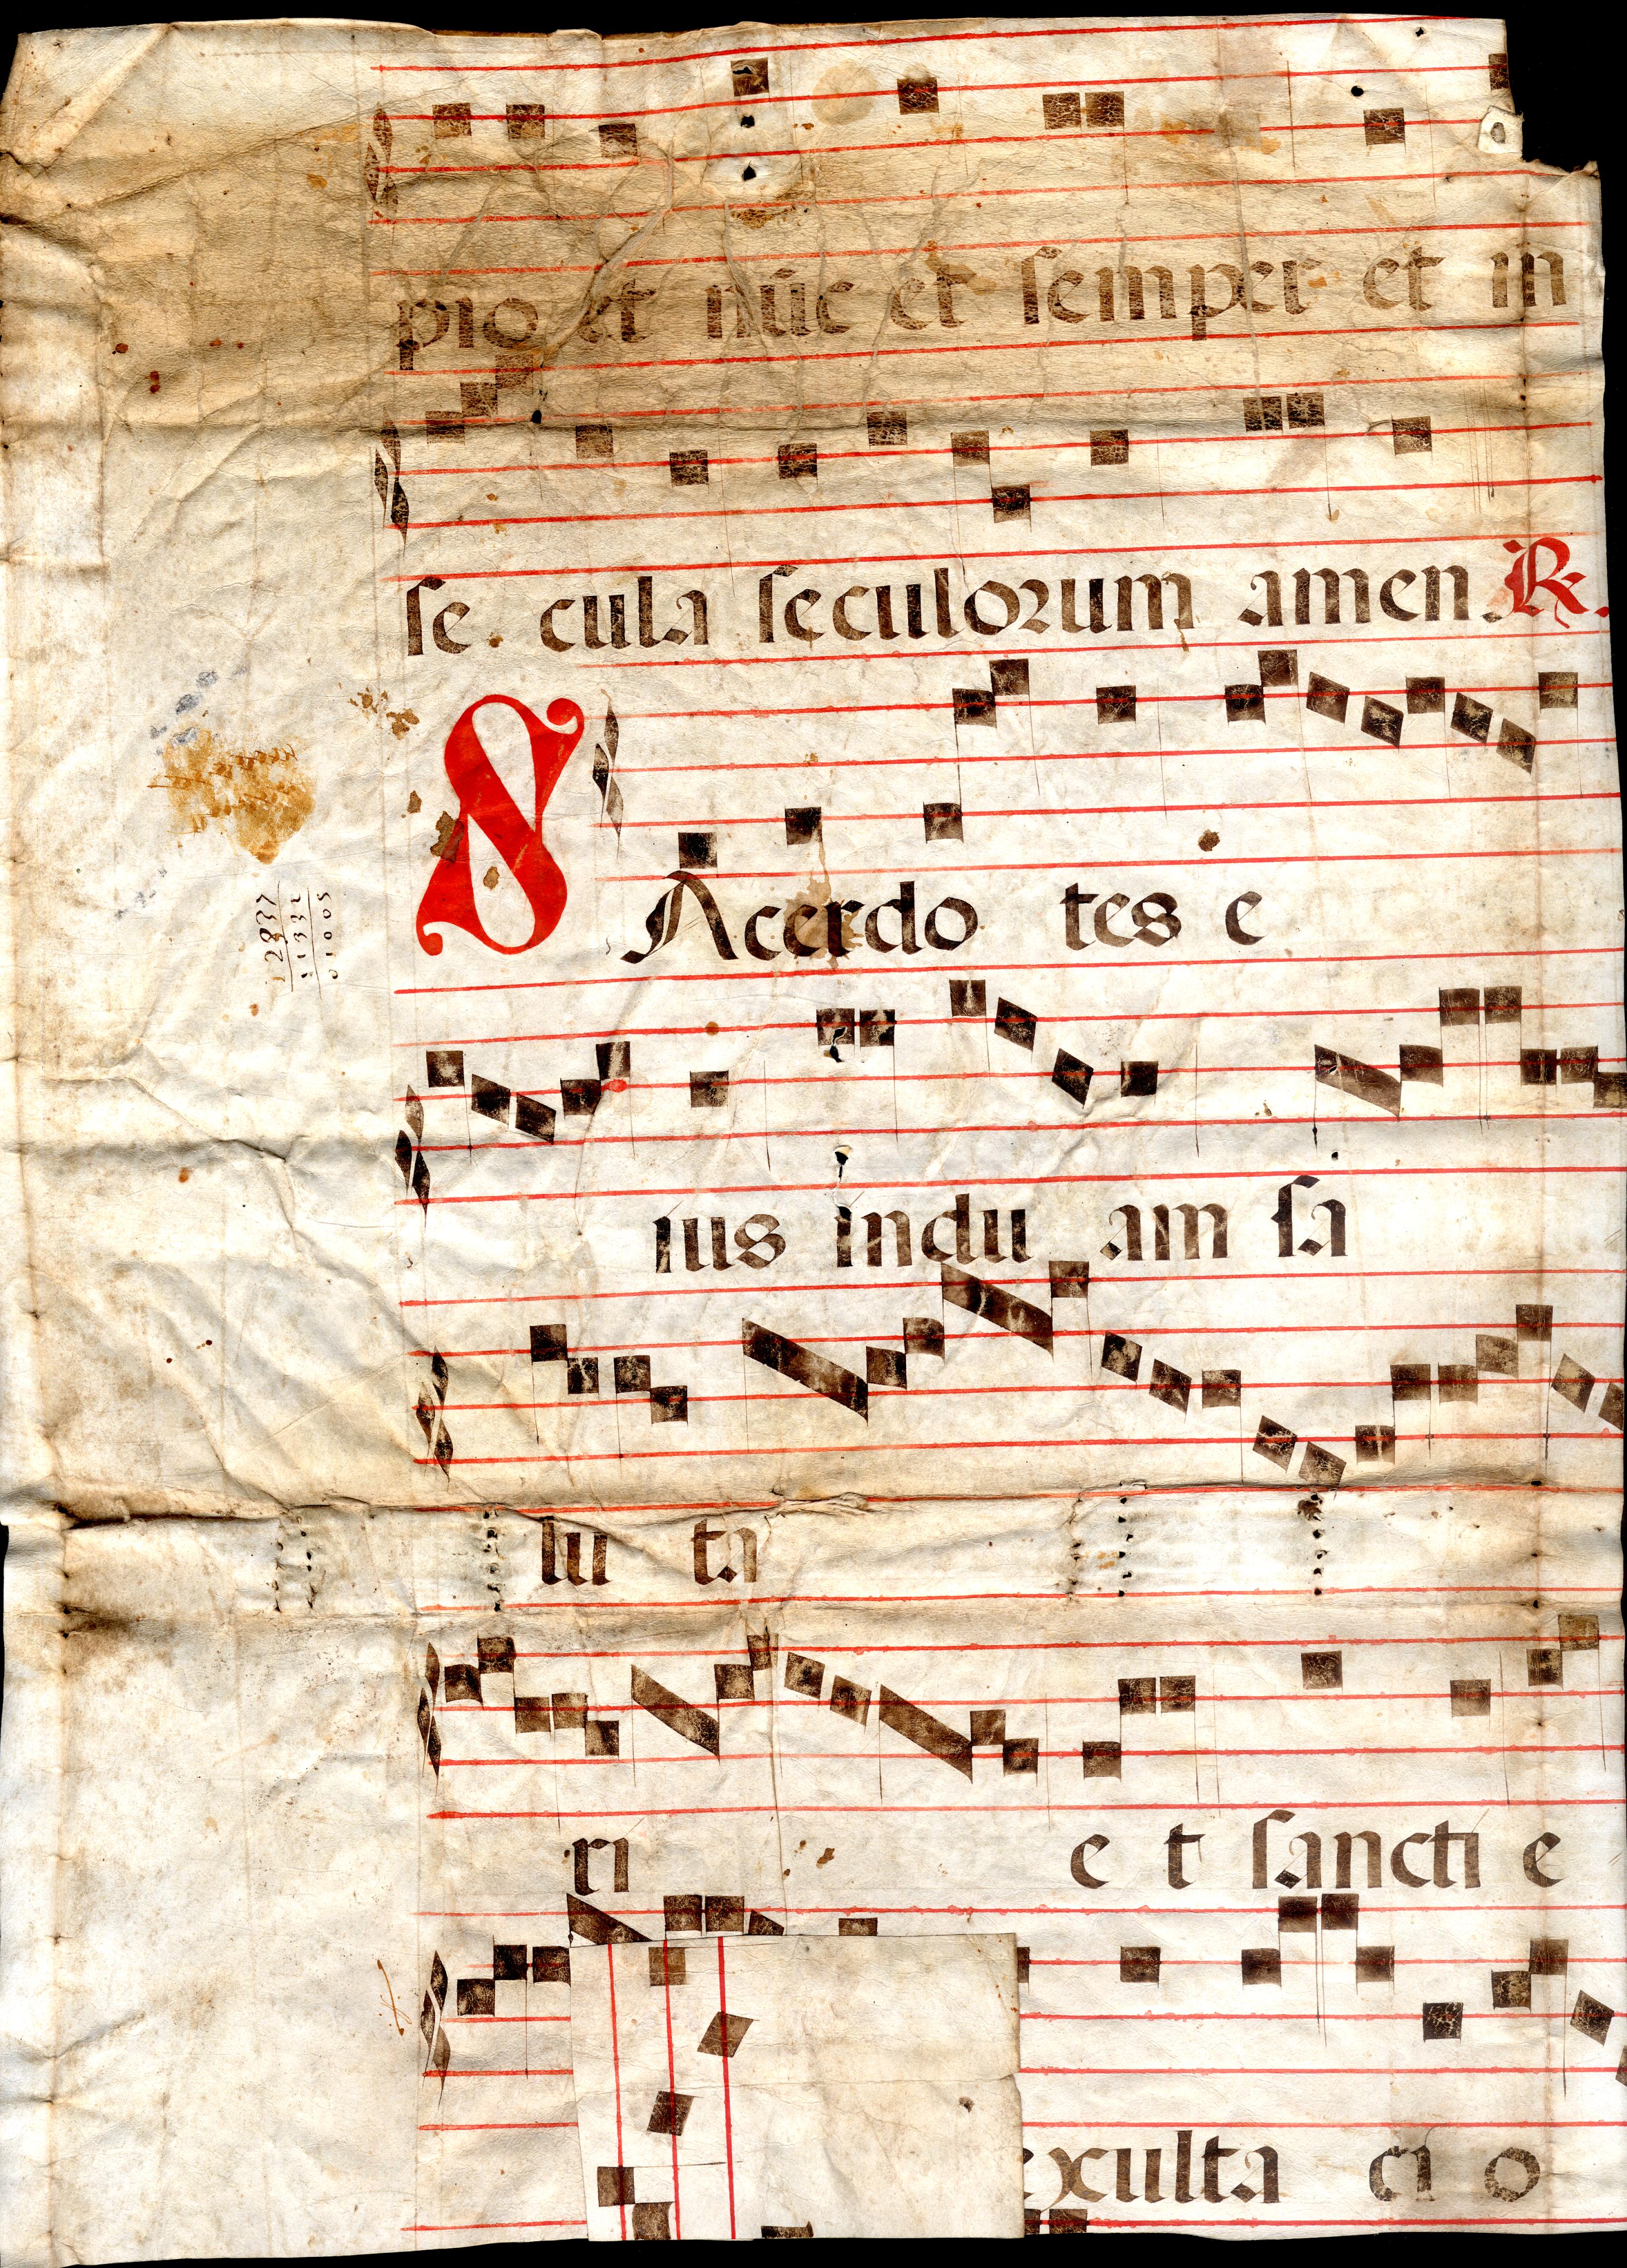 pio et nūc et semper et in
se cula seculorum amen ℟.
SAcerdo tes e
ius indu am sa
lu ta
ri e t sancti e
exulta ci o
12937
11332
01005